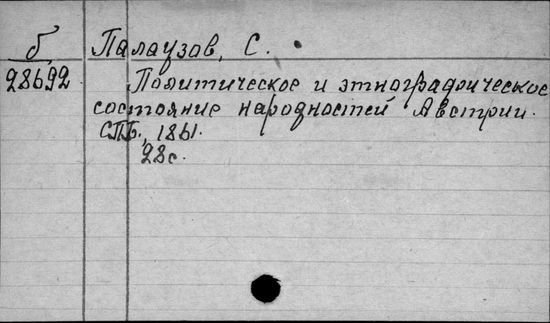 б Палаузов, С.
28692 Политическое и этнографическое
состояние народностей Австрии.
СПб., 1861.
28с.